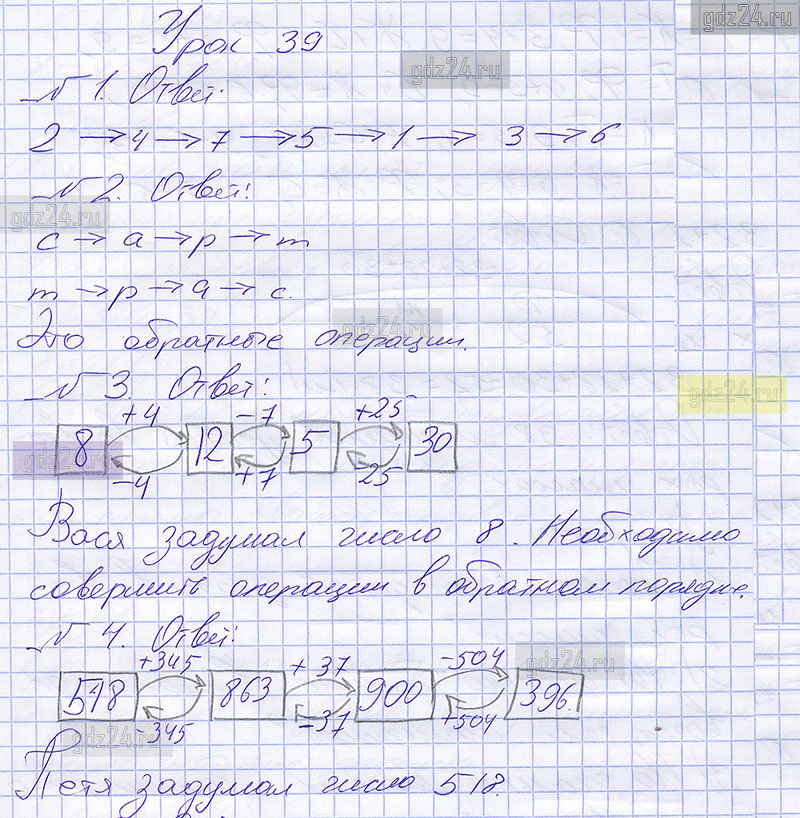 gdz24.ru
Урок 39
gdz24.ru
№ 1. Ответ:
2 → 4 → 7 → 5 → 1 → 3 → 6
№ 2. Ответ:
gdz24.ru
с → а → р → т
т → р → а → с.
gdz24.ru
Это обратные операции.
№ 3. Ответ:
gdz24.ru
+4 -7 +25
8 12 5 30
gdz24.ru
-4 +7 -25
Вася задумал число 8. Необходимо
совершить операции в обратном порядке.
№ 4. Ответ:
gdz24.ru
+345 +37 -504
518 863 900 396.
-345 -37 +504
gdz24.ru
Петя задумал число 518.